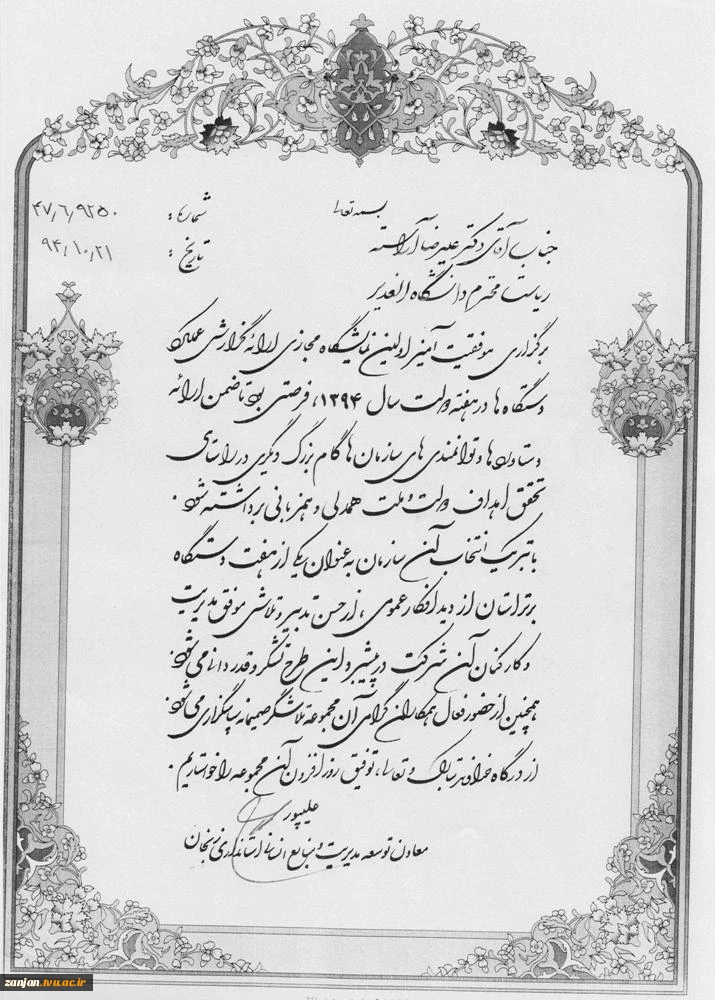 بسمه تعالی
شماره: ۴۷٫۶٫۹۲۵۰
تاریخ: ۹۴٫۱۰٫۲۱
جناب آقای دکتر علیرضا آراسته
ریاست محترم دانشگاه الغدیر
برگزاری موفقیت آمیز اولین نمایشگاه مجازی ارائه گزارش عملکرد
دستگاه ها در هفته دولت سال ۱۳۹۴، فرصتی بود تا ضمن ارائه
دستاوردها و توانمندی های سازمان ها گام بزرگ دیگری در راستای
تحقق اهداف دولت و ملت همدلی و همزبانی برداشته شود.
با تبریک انتخاب آن سازمان به عنوان یکی از هفت دستگاه
برتر استان از دید افکار عمومی، از حسن تدبیر و تلاش موفق مدیریت
و کارکنان آن شرکت در پیشبرد این طرح تشکر و قدردانی می شود.
همچنین از حضور فعال همکاران گرامی آن مجموعه تلاشگر صمیمانه سپاسگزاری می شود.
از درگاه خداوند تبارک و تعالی، توفیق روز افزون آن مجموعه را خواستاریم.
علیپور
معاون توسعه مدیریت و منابع انسانی استانداری زنجان
zanjan.tvu.ac.ir